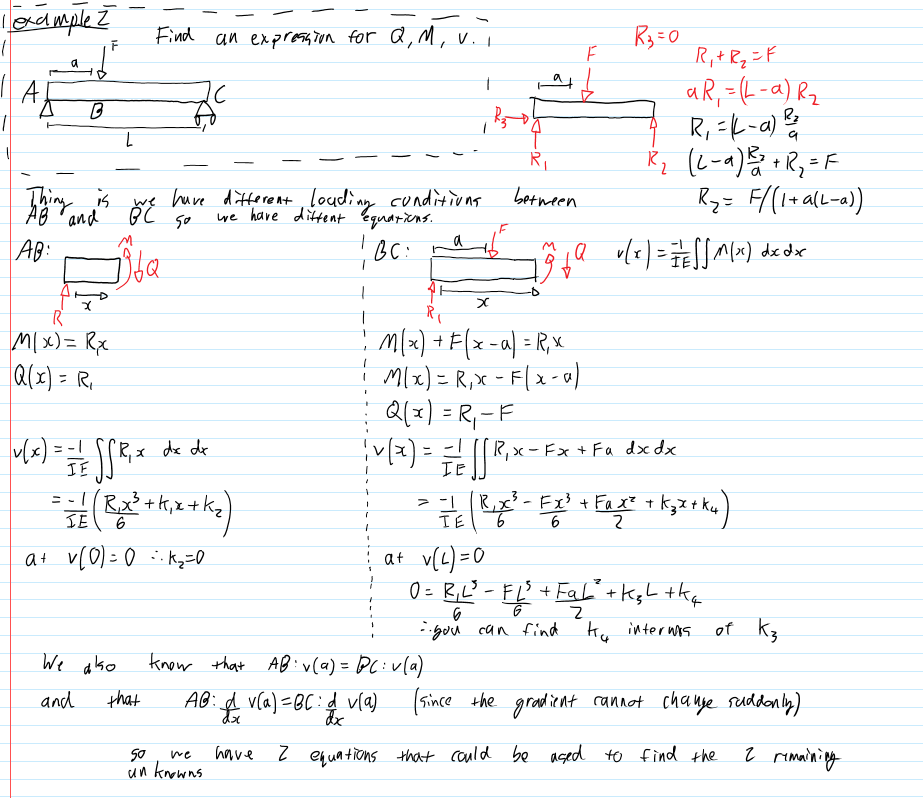 example 2
Find an expression for Q, M, v.
F
a
A
B
C
L
R₃=0
F
a
R₃
R₁
R₂
R₁+R₂=F
aR₁=(L-a) R₂
R₁=(L-a) R₂/a
(L-a) R₂/a + R₂ = F
R₂= F/(1+a(L-a))
Thing is we have different loading conditions between
AB and BC so we have diffent equations.
AB:
M
Q
x
R
M(x) = R₁x
Q(x) = R₁
v(x) = -1/IE ∬ R₁x dx dx
= -1/IE (R₁x³/6 + k₁x + k₂)
at v(0)=0 ∴k₂=0
BC:
a
F
M
Q
x
R₁
v(x) = -1/IE ∬ M(x) dx dx
M(x) + F(x-a) = R₁x
M(x) = R₁x - F(x-a)
Q(x) = R₁-F
v(x) = -1/IE ∬ R₁x - Fx + Fa dx dx
= -1/IE (R₁x³/6 - Fx³/6 + Fax²/2 + k₃x + k₄)
at v(L)=0
0 = R₁L³/6 - FL³/6 + FaL²/2 + k₃L + k₄
∴you can find k₄ interms of k₃
We also know that AB: v(a) = BC: v(a)
and that AB: d/dx v(a) = BC: d/dx v(a) (since the gradient cannot change suddonly)
so we have 2 equations that could be used to find the 2 remaining
unknowns